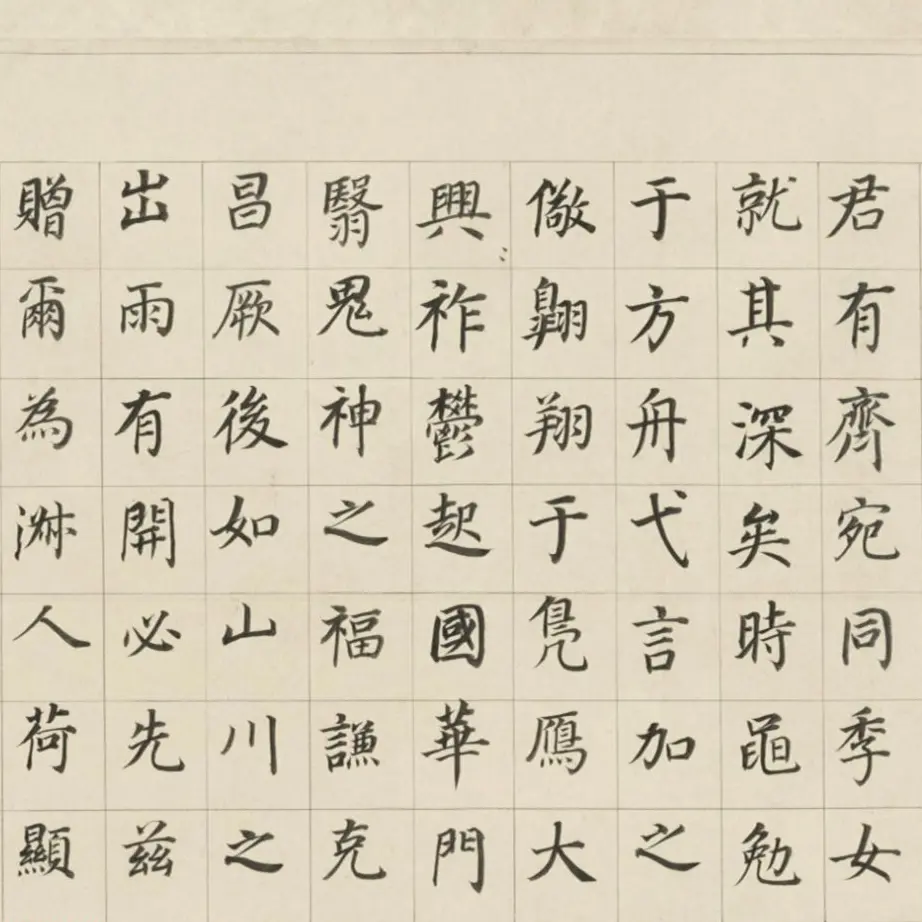 君有齊宛同季女
就其深矣時黽勉
于方舟弋言加之
儆翱翔于鳧鴈大
興祚鬱起國華門
翳鬼神之福謙克
昌厥後如山川之
出雨有開必先茲
贈爾為淋人荷顯